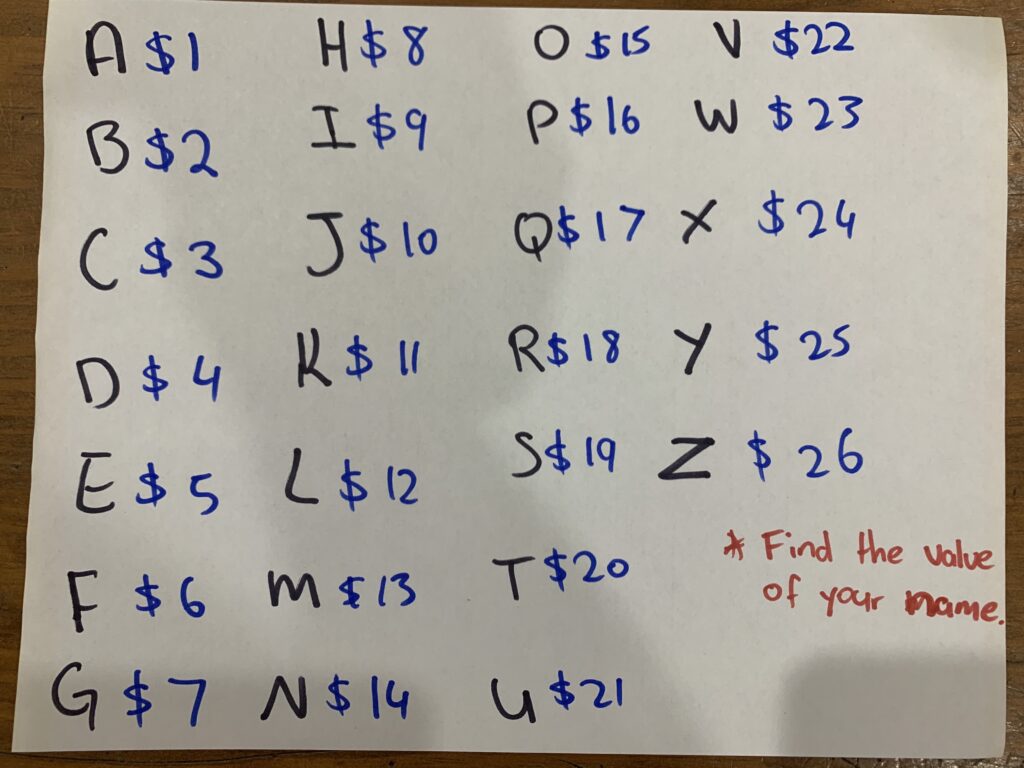 A $1
B $2
C $3
D $4
E $5
F $6
G $7
H $8
I $9
J $10
K $11
L $12
M $13
N $14
O $15
P $16
Q $17
R $18
S $19
T $20
U $21
V $22
W $23
X $24
Y $25
Z $26
* Find the value
of your name.